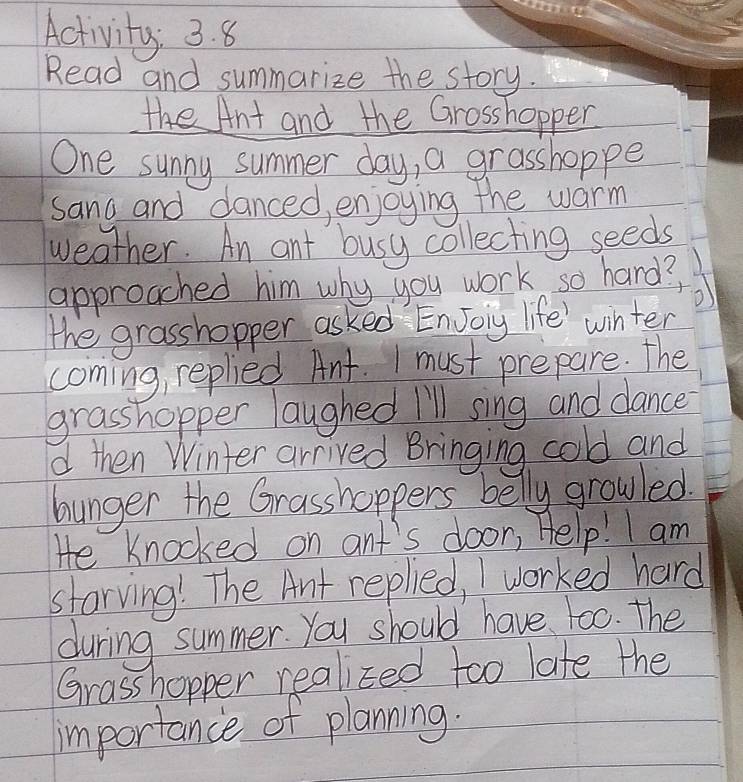 Activity: 3.8
Read and summarize the story.
the Ant and the Grosshopper
One sunny summer day, a grasshoppe
sang and danced, enjoying the warm
weather. An ant busy collecting seeds
approached him why you work so hard?,
the grasshopper asked Enjoiy life' winter
coming, replied Ant. I must prepare. The
grasshopper laughed I'll sing and dance
d then Winter arrived Bringing cold and
hunger the Grasshoppers belly growled.
He Knocked on ant's door, Help! I am
starving! The Ant replied, I worked hard
during summer. You should have too. The
Grasshopper realized too late the
importance of planning.